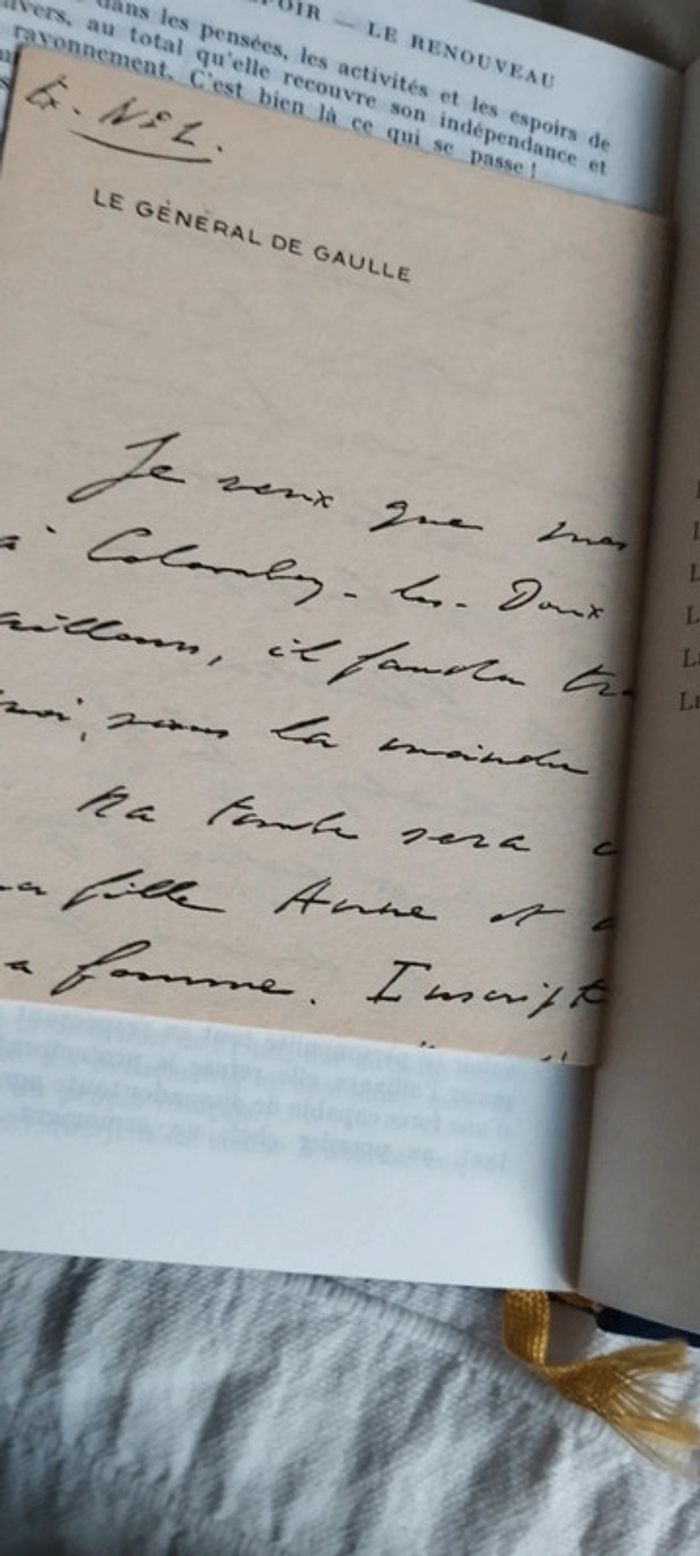 OIR — LE RENOUVEAU
dans les pensées, les activités et les espoirs de
vers, au total qu'elle recouvre son indépendance et
rayonnement. C'est bien là ce qui se passe !
Ex. N° 2.
LE GÉNÉRAL DE GAULLE
Je veux que mes
à Colombey-les-Deux
ailleurs, il faudra
moi, sans la moindre
Ma tombe sera
fille Anne et
a femme. Inscript